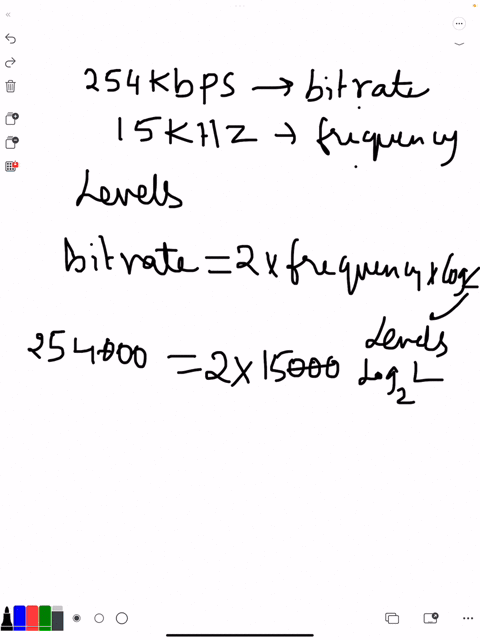 254Kbps → bitrate
15KHZ → frequency
Levels
bitrate = 2 x frequency x log L
Levels
254000 = 2 x 15000 Log₂ L